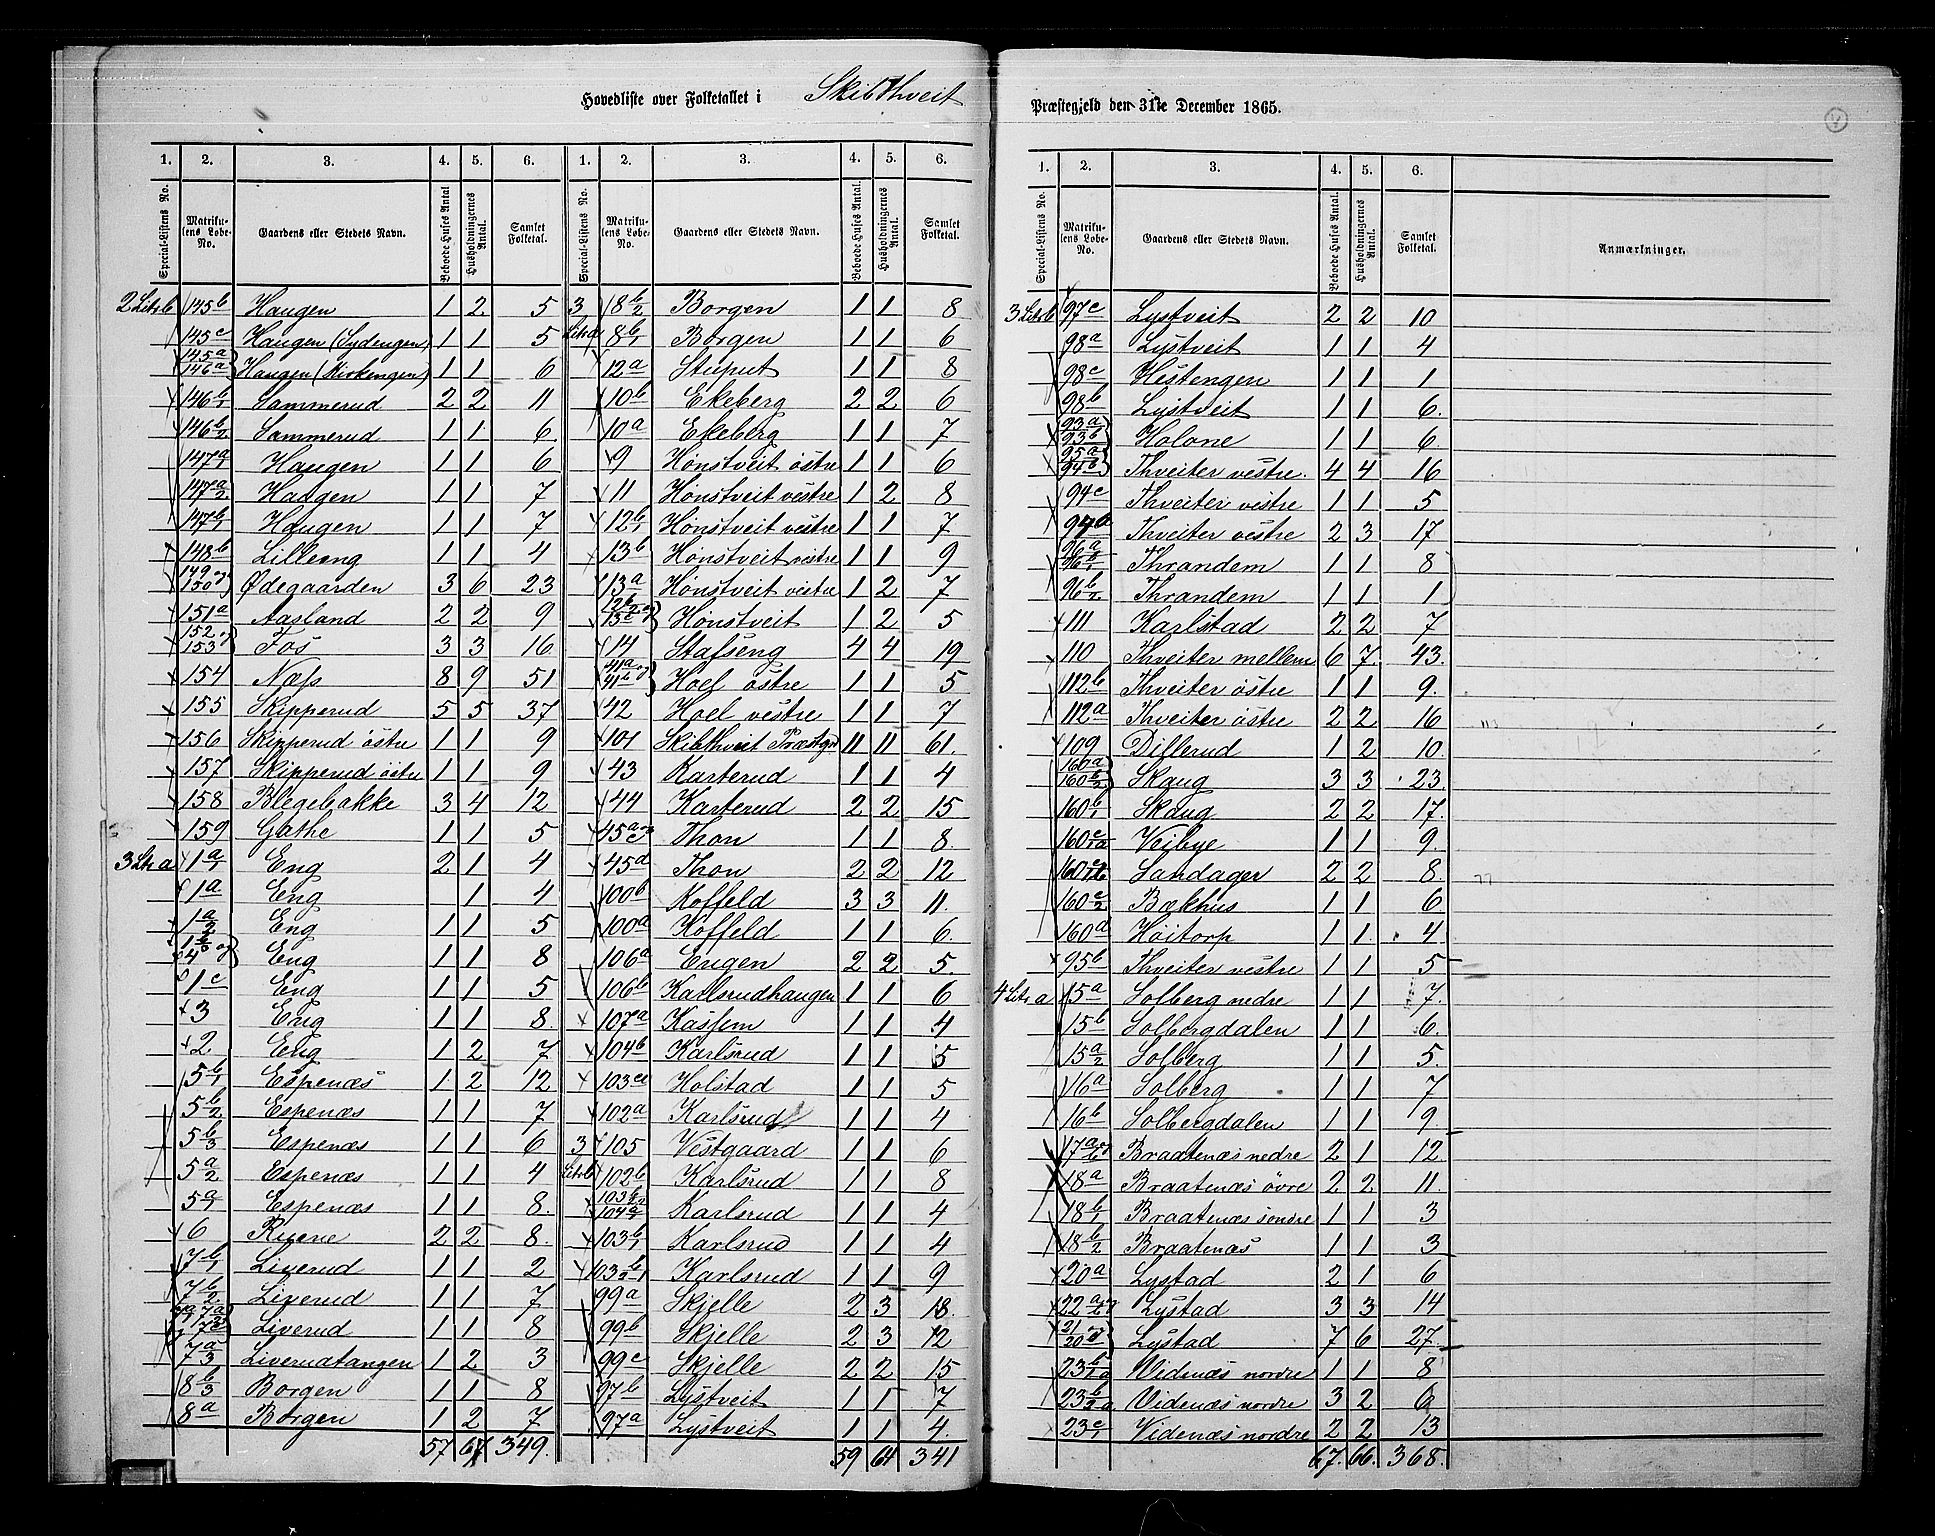 Hovedliste over Folketallet i Skibthveit
1. 2. 3. 4. 5. 6. 1. 2. 3. 4. 5. 6.
Special-Listens No. Matrikulens Løbe-No. Gaardens eller Stedets Navn. Beboede Huses Antal Husholdningernes Antal. Samlet Folketal. Special-Listens No. Matrikulens Løbe-No. Gaardens eller Stedets Navn. Beboede Huses Antal. Husholdningernes Antal. Samlet Folketal.
2 Litr b 145b Haugen 1 2 5
145c Haugen (Sydengen) 1 1 5
145a 146a Haugen (Kirkengen) 1 1 6
146b/1 Sammerud 2 2 11
146b/2 Sammerud 1 1 6
147a/1 Haugen 1 1 6
147a/2 Haugen 1 1 7
147b/1 Haugen 1 1 7
148b Lilleeng 1 1 4
149 og 150 Ødegaarden 3 6 23
151a Aasland 2 2 9
152 og 153 Fos 3 3 16
154 Næss 8 9 51
155 Skipperud 5 5 37
156 Skipperud östre 1 1 9
157 Skipperud östre 1 1 9
158 Blegebakke 3 4 12
159 Gathe 1 1 5
3 Litr a 1a/1 Eng 2 1 4
1a Eng 1 4
1a/2 Eng 1 1 5
4 Eng 1 1 8
1c Eng 1 1 5
3 Eng 1 1 8.
2 Eng 1 2 7
5b/1 Espenæs 1 2 12
5b/2 Espenæs 1 1 7
5b/3 Espenæs 1 1 6
5a/2 Espenæs 1 1 4
5a/1 Espenæs 1 1 8.
6 Ruene 2 2 8.
7b/1 Liverud 1 1 2
7b/2 Liverud 1 1 7
Liverud 1 1 8
7a/3 Liverudtangen 1 2 3
8b/3 Borgen 1 1 8
8a Borgen 1 2 7
57 67 349.
3 Litr a 8b/2 Borgen 1 1 8
8b/1 Borgen 1 1 6
12a Stuput 1 1 8
10b Ekeberg 2 2 6
10a Ekeberg 1 1 7
9 Hönstveit östre 1 1 6
11 Hönstveit vestre 1 2 8
12b/1 Hönstveit vestre 1 1 7
13b Hönstveit vestre 1 1 9
13a Hönstveit vestre 1 2 7
12b/2 og 13c Hönstveit 1 2 5
14 Stafseng 4 4 19
41a og 41b Hoel östre 1 1 5
42 Hoel vestre 1 1 7
101 Skibthveit Præstgd 11 11 61.
43 Karterud 1 1 4
44 Karterud 2 2 15
45a og c Thon 1 1 8.
45d Thon 2 2 12
100b Koffeld 3 3 11.
100a Koffeld 1 1 6.
106a Engen 2 2 5.
106b Karlsrudhaugen 1 1 6
107a Kassem 1 1 4
104b Karlsrud 1 1 5
103a Holstad 1 1 5
102a Karlsrud 1 1 4
3 Litr b 105 Vestgaard 1 1 6
102b Karlsrud 1 1 8
103b/2 104a Karlsrud 1 1 4
103b/1 Karlsrud 1 1 4
103b Karlsrud 1 1 9
99a Skjelle 2 3 18.
99b Skjelle 2 3 12
99c Skjelle 2 2 15
97b Lystveit 1 1 7
97a Lystveit 1 1 4.
59 64 341
Præstegjeld den 31te December 1865.
1. 2. 3. 4. 5. 6.
Special-Listens No. Matrikulens Løbe-No. Gaardens eller Stedets Navn. Beboede Huses Antal Husholdningernes Antal. Samlet Folketal. Anmærkninger.
3 Litr b 97c Lystveit 2 2 10
98a Lystveit 1 1 4
98c Hestengen 1 1 1
98b Lystveit 1 1 6.
93a 93b Holone 1 1 6.
95a 94b Thveiter vestre. 4 4 16
94c Thveiter vestre 1 1 5
94a Thveiter östre 2 3 17
96a 96b/1 Thrandem 1 1 8
96b/2 Thrandem 1 1 1
111 Karlstad 2 2 7
110 Thveiter mellem 6 7. 43.
112b Thveiter östre 1 1 9.
112a Thveiter östre 2 2 16
109 Dillerud 1 2 10.
160a 160b/2 Skaug 3 3 23.
160b/1 Skaug 2 2 17.
160c/1a Veibye 1 1 9
160c/1b Sandager 2 2 8.
160c/2 Bækhus 1 1 6
160d Höitorp 1 1. 4
95b Thveiter vestre 1 1 5
4 Litr a 15a Solberg nedre 1 1 7.
15b Solbergdalen 1 1 6.
15a/2 Solberg 1 1 5.
16a Solberg 1 1 7
16b Solbergdalen 1 1 9.
17a og b Braatenæs nedre 2 1 12.
18a Braatenæs övre 2 2 11
18b/1 Braatenæs söndre 1 1 3
18b/2 Braatenæs 1 1 3
20a Lystad 2 1 6
22a Lystad 3 3 14
21 Lystad 7 6 27.
23b Videnæs nordre 1 1 8
23b Videnæs nordre 3 2 6
23c/1 Videnæs nordre 2 2 13
67. 66. 368.